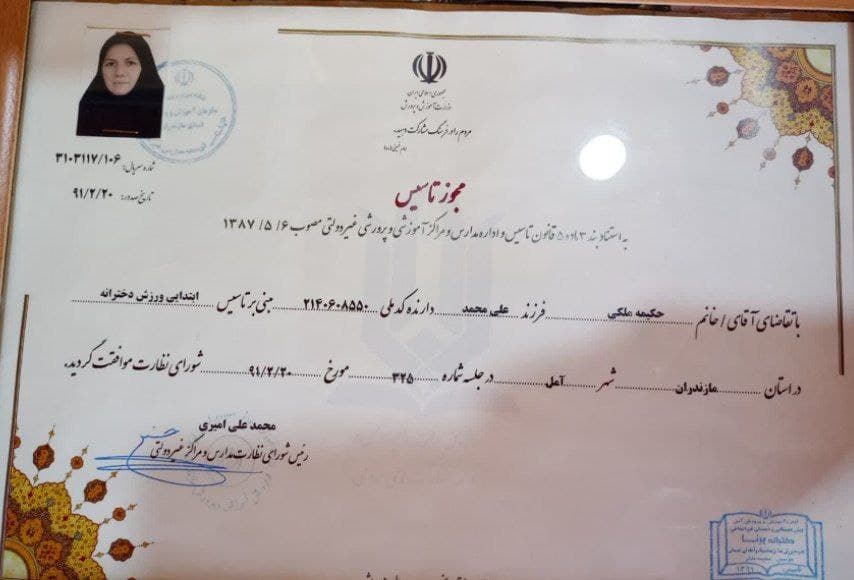 جمهوری اسلامی ایران
وزارت آموزش و پرورش
مردم را در فرهنگ مشارکت دهید.
شماره سریال: ۳۱۰۳۱۱۷/۱۰۶
تاریخ صدور: ۹۱/۲/۲۰
مجوز تاسیس
به استناد بند ۳ ماده ۵ قانون تاسیس و اداره مدارس و مراکز آموزشی و پرورشی غیردولتی مصوب ۶ /۵ /۱۳۸۷
با تقاضای آقای / خانم حکیمه ملکی فرزند علی محمد دارنده کد ملی ۲۱۴۰۶۰۸۵۵۰ مبنی بر تاسیس ابتدایی ورزش دخترانه
در استان مازندران شهر آمل در جلسه شماره ۳۲۵ مورخ ۹۱/۲/۲۰ شورای نظارت موافقت گردید.
محمد علی امیری
رئیس شورای نظارت مدارس و مراکز غیردولتی